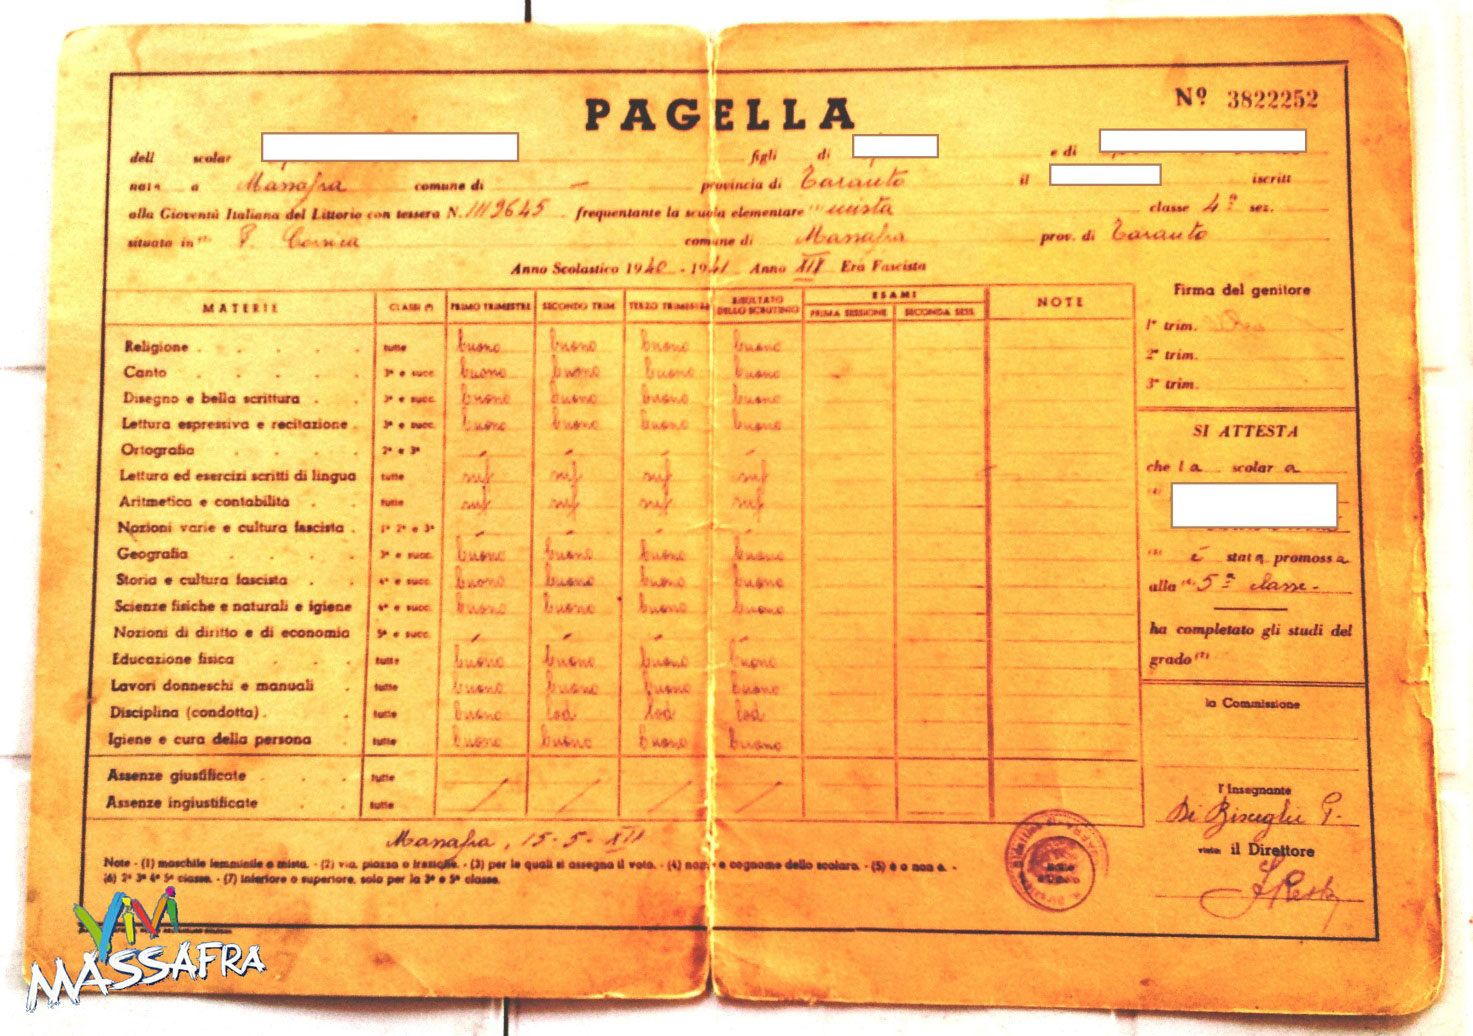 PAGELLA
Nº 3822252
dell scolar figli di e di
nat a Massafra comune di — provincia di Taranto il iscritt
alla Gioventù Italiana del Littorio con tessera N. 1119645 frequentante la scuola elementare (1) mista classe 4ª sez.
situata in (2) P. Corsica comune di Massafra prov. di Taranto
Anno Scolastico 1940 - 1941 Anno XIX Era Fascista
MATERIE CLASSI (3) PRIMO TRIMESTRE SECONDO TRIM. TERZO TRIMESTRE RISULTATO DELLO SCRUTINIO ESAMI NOTE
PRIMA SESSIONE SECONDA SESS.
Religione tutte buono buono buono buono
Canto 3ª e succ. buono buono buono buono
Disegno e bella scrittura 3ª e succ. buono buono buono buono
Lettura espressiva e recitazione 3ª e succ. buono buono buono buono
Ortografia 2ª e 3ª
Lettura ed esercizi scritti di lingua tutte suf suf suf suf
Aritmetica e contabilità tutte suf suf suf suf
Nozioni varie e cultura fascista 1ª 2ª e 3ª
Geografia 3ª e succ. buono buono buono buono
Storia e cultura fascista 4ª e succ. buono buono buono buono
Scienze fisiche e naturali e igiene 4ª e succ. buono buono buono buono
Nozioni di diritto e di economia 5ª e succ.
Educazione fisica tutte buono buono buono buono
Lavori donneschi e manuali tutte buono buono buono buono
Disciplina (condotta) tutte buono lod lod lod
Igiene e cura della persona tutte buono buono buono buono
Assenze giustificate tutte
Assenze ingiustificate tutte
Massafra, 15-5-XIX
Note - (1) maschile femminile o mista. - (2) via, piazza o frazione. - (3) per le quali si assegna il voto. - (4) nome e cognome dello scolaro. - (5) è o non è. -
(6) 2ª 3ª 4ª 5ª classe. - (7) inferiore o superiore, solo per la 3ª e 5ª classe.
Firma del genitore
1º trim.
2º trim.
3º trim.
SI ATTESTA
che l a scolar a
(4)
(5) è stat a promoss a
alla (6) 5ª classe.
ha completato gli studi del
grado (7)
la Commissione
l'Insegnante
Di Bisceglie P.
visto: il Direttore
VIVI
MASSAFRA